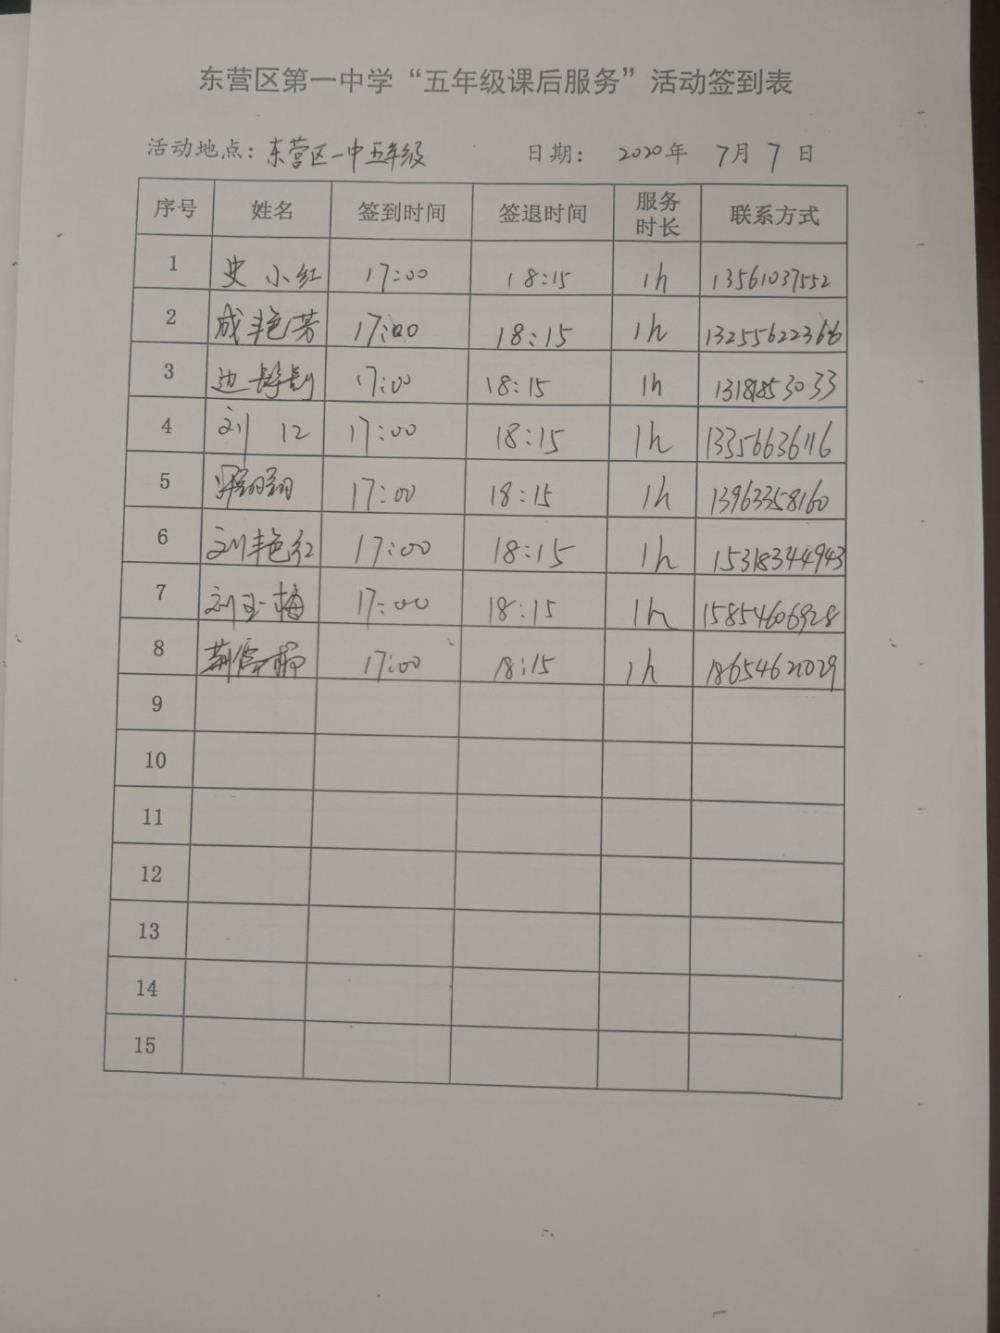 东营区第一中学“五年级课后服务”活动签到表
活动地点：东营区一中五年级 日期： 2020年 7月 7 日
序号 姓名 签到时间 签退时间 服务时长 联系方式
1 史小红 17:00 18:15 1h 13561037552
2 成艳芳 17:00 18:15 1h 13255622366
3 边 17:00 18:15 1h 13181853033
4 刘 17:00 18:15 1h 13356636116
5 17:00 18:15 1h 13963358160
6 刘艳红 17:00 18:15 1h 15318344943
7 刘玉梅 17:00 18:15 1h 15854606928
8 17:00 18:15 1h 18654621029
9
10
11
12
13
14
15